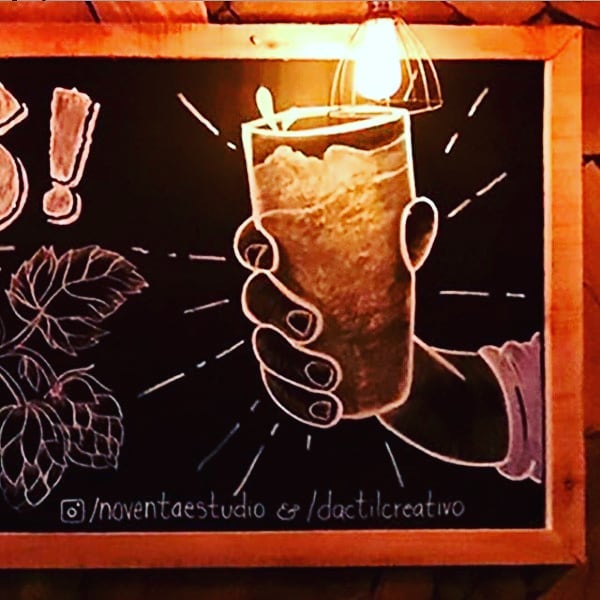 S!
/noventaestudio & /dactilcreativo